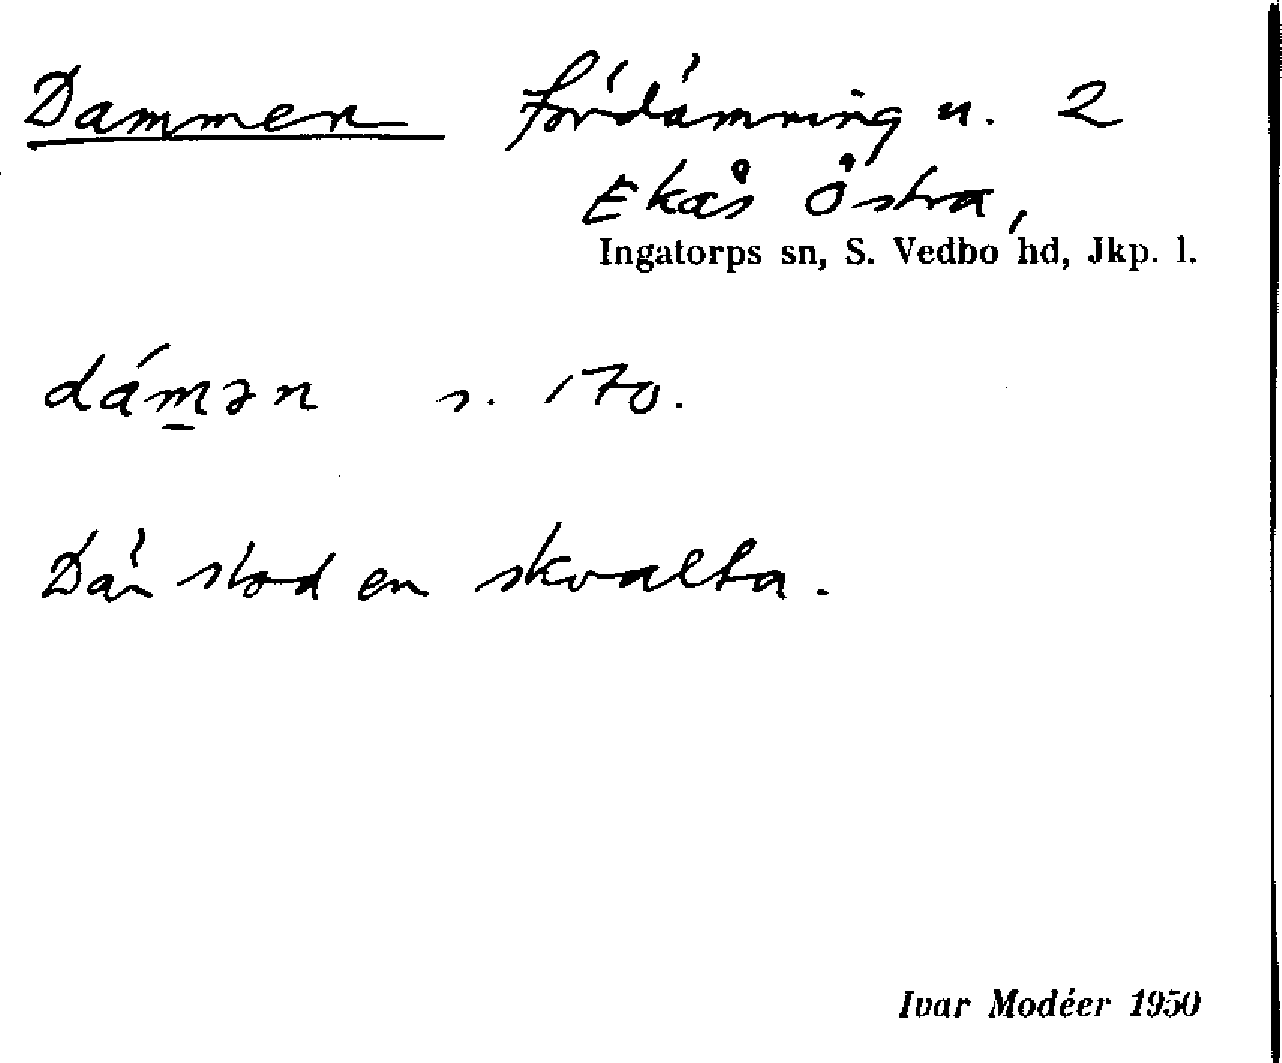 Dammen fördämning u. 2
Ekås Östra,
Ingatorps sn, S. Vedbo hd, Jkp. l.
dámən s. 170.
Där stod en skvalta.
Ivar Modéer 1950